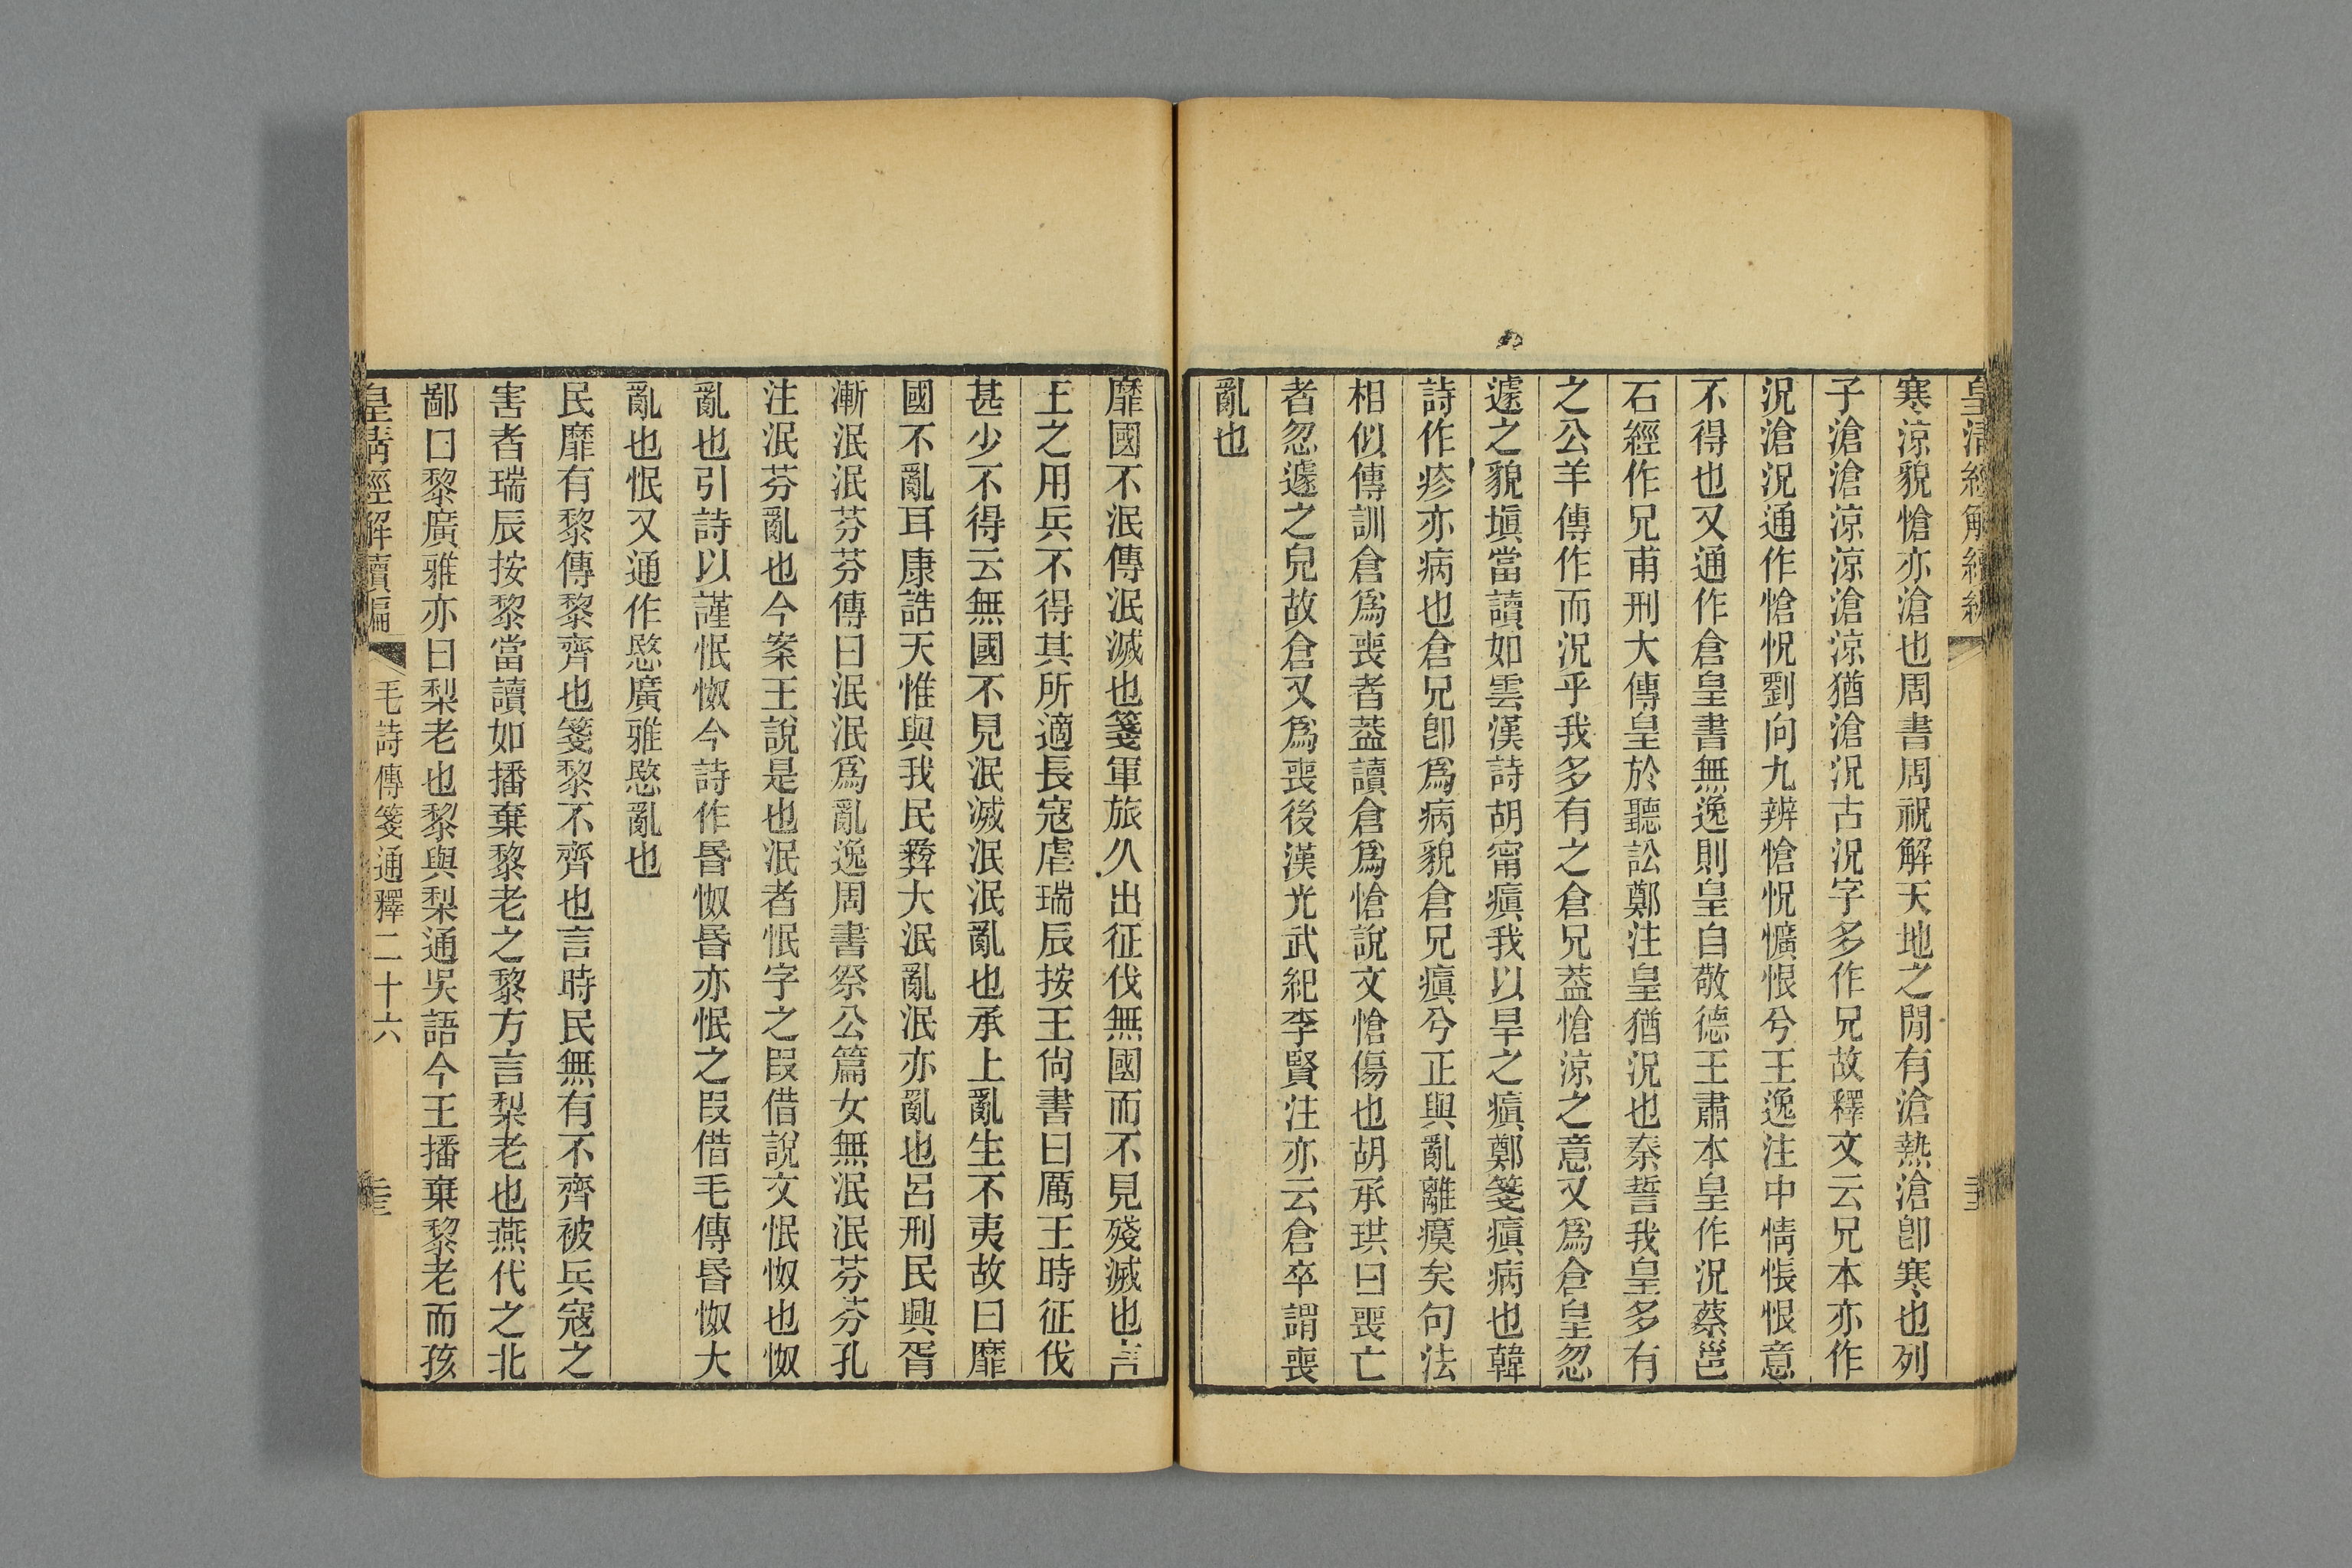 寒涼貌愴亦滄也周書周祝解天地之閒有滄熱滄卽寒也列
子滄滄涼涼滄涼猶滄況古況字多作兄故釋文云兄本亦作
況滄況通作愴怳劉向九辨愴怳懭悢兮王逸注中情悵恨意
不得也又通作倉皇書無逸則皇自敬德王肅本皇作況蔡邕
石經作兄甫刑大傳皇於聽訟鄭注皇猶況也秦誓我皇多有
之公羊傳作而況乎我多有之倉兄葢愴涼之意又爲倉皇忽
遽之貌塡當讀如雲漢詩胡甯瘨我以旱之瘨鄭箋瘨病也韓
詩作疹亦病也倉兄卽爲病貌倉兄瘨兮正與亂離瘼矣句法
相似傳訓倉爲喪者葢讀倉爲愴說文愴傷也胡承珙曰喪亡
者忽遽之皃故倉又爲喪後漢光武紀李賢注亦云倉卒謂喪
亂也
靡國不泯傳泯滅也箋軍旅久出征伐無國而不見殘滅也言
王之用兵不得其所適長寇虐瑞辰按王尙書曰厲王時征伐
甚少不得云無國不見泯滅泯泯亂也承上亂生不夷故曰靡
國不亂耳康誥天惟與我民彝大泯亂泯亦亂也呂刑民興胥
漸泯泯芬芬傳曰泯泯爲亂逸周書祭公篇女無泯泯芬芬孔
注泯芬亂也今案王說是也泯者怋字之叚借說文怋怓也怓
亂也引詩以謹怋怓今詩作昬怓昬亦怋之叚借毛傳昬怓大
亂也怋又通作愍廣雅愍亂也
民靡有黎傳黎齊也箋黎不齊也言時民無有不齊被兵寇之
害者瑞辰按黎當讀如播棄黎老之黎方言梨老也燕代之北
鄙曰黎廣雅亦曰梨老也黎與梨通吳語今王播棄黎老而孩
皇淸經解續編 毛詩傳箋通釋二十六